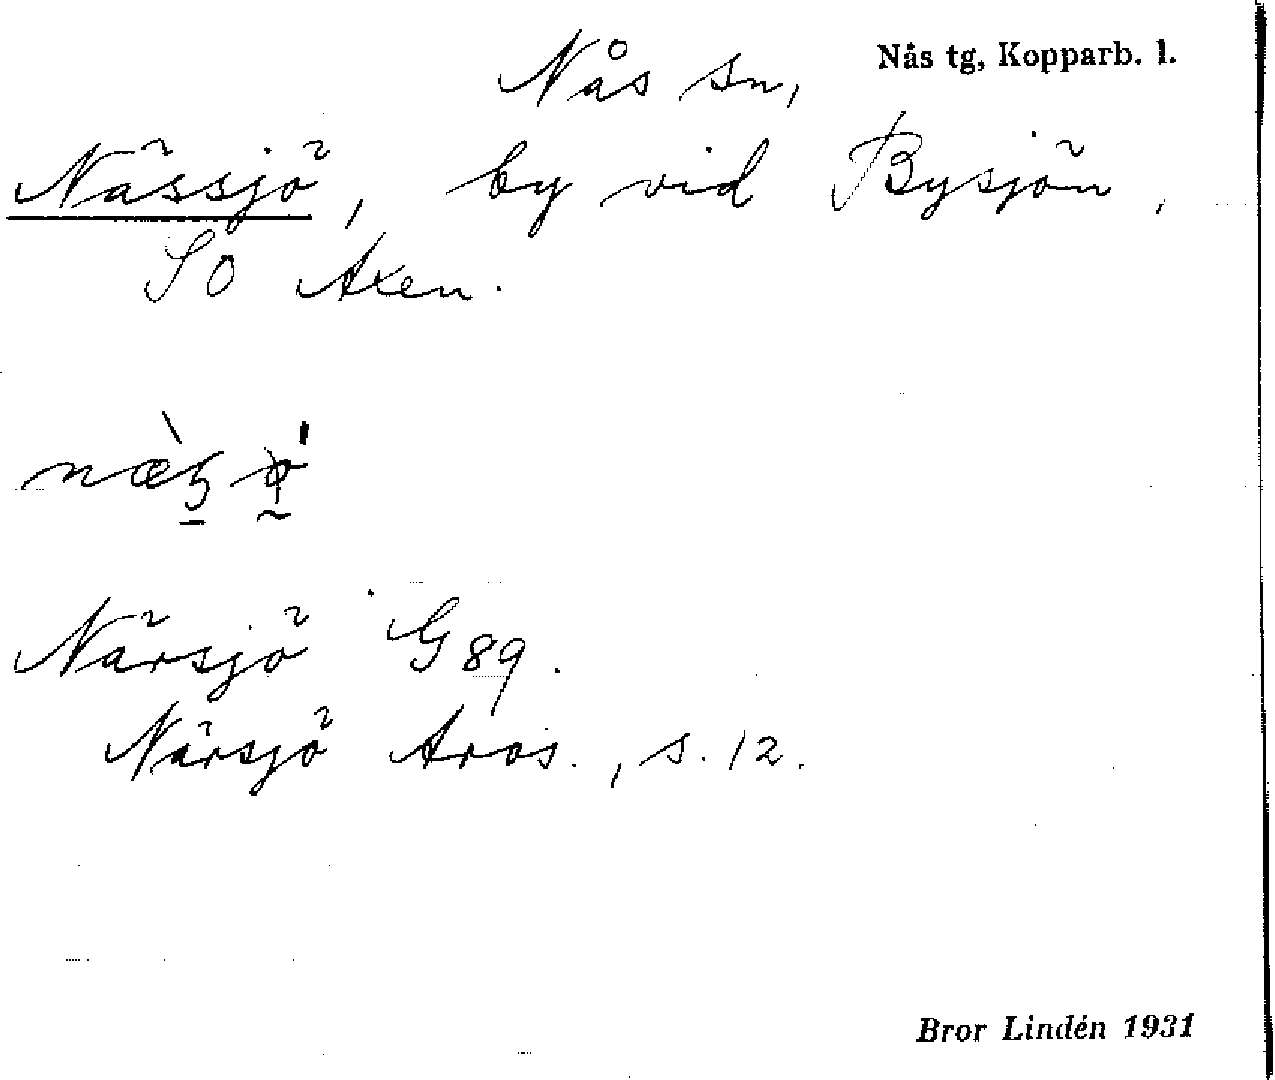 Nås sn, Nås tg, Kopparb. l.
Nässjö, by vid Bysjön,
SO Axen.
Närsjö G 89.
Närsjö Aros., s. 12.
Bror Lindén 1931